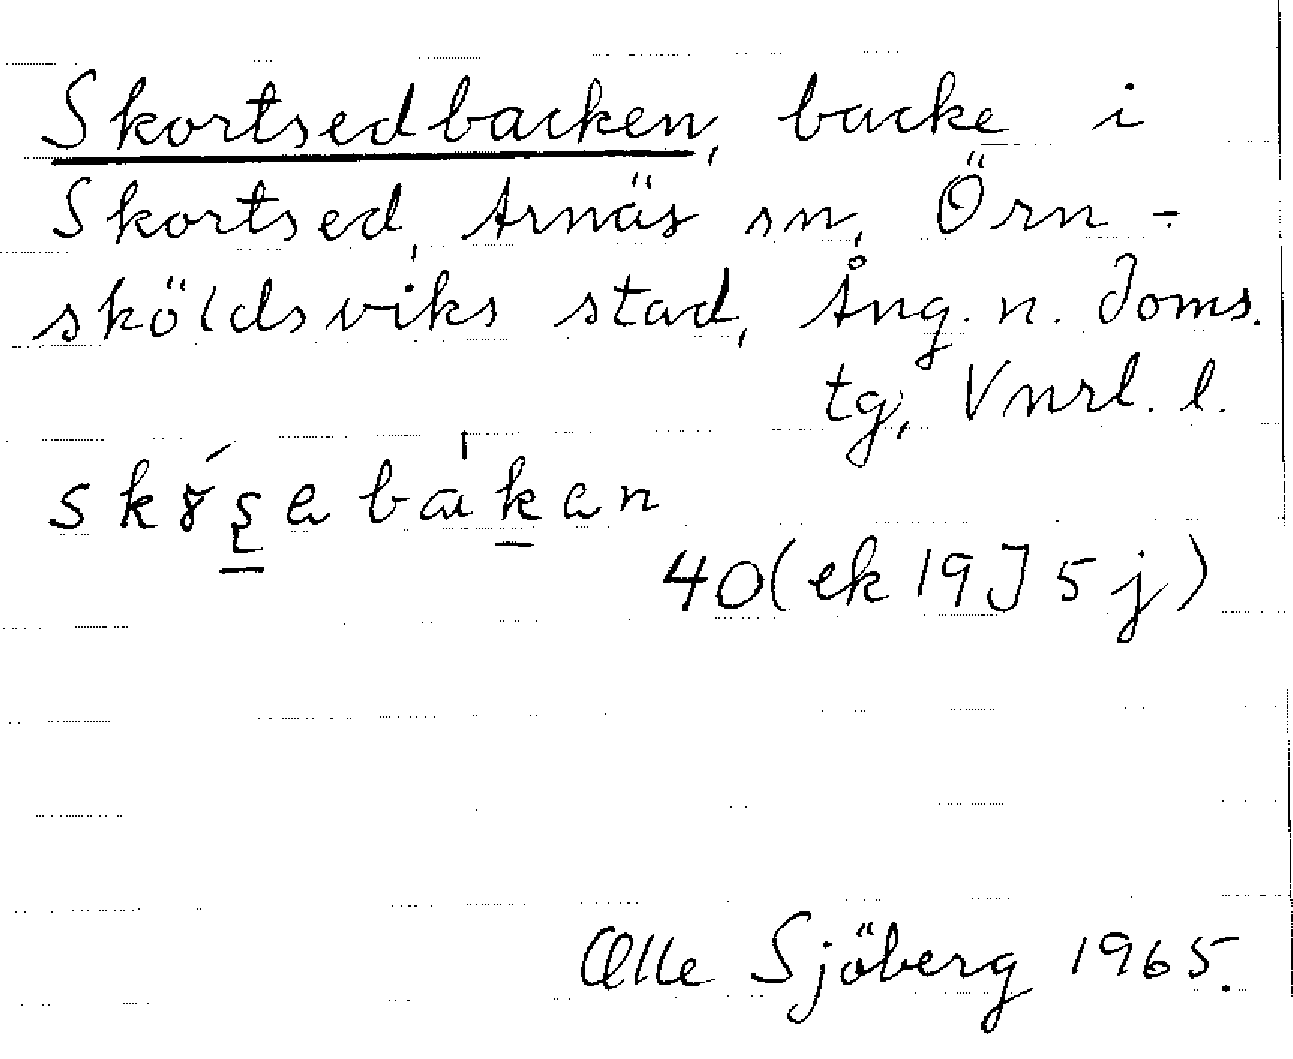 Skortsedbacken, backe i
Skortsed, Arnäs sn, Örn-
sköldsviks stad, Ång. n. doms.
tg, Vnrl. l.
40 (ek 19J 5 j)
Olle Sjöberg 1965.